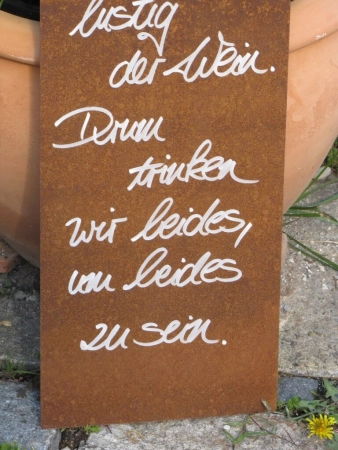 lustig
der Wein.
Drum
trinken
wir beides,
um beides
zu sein.